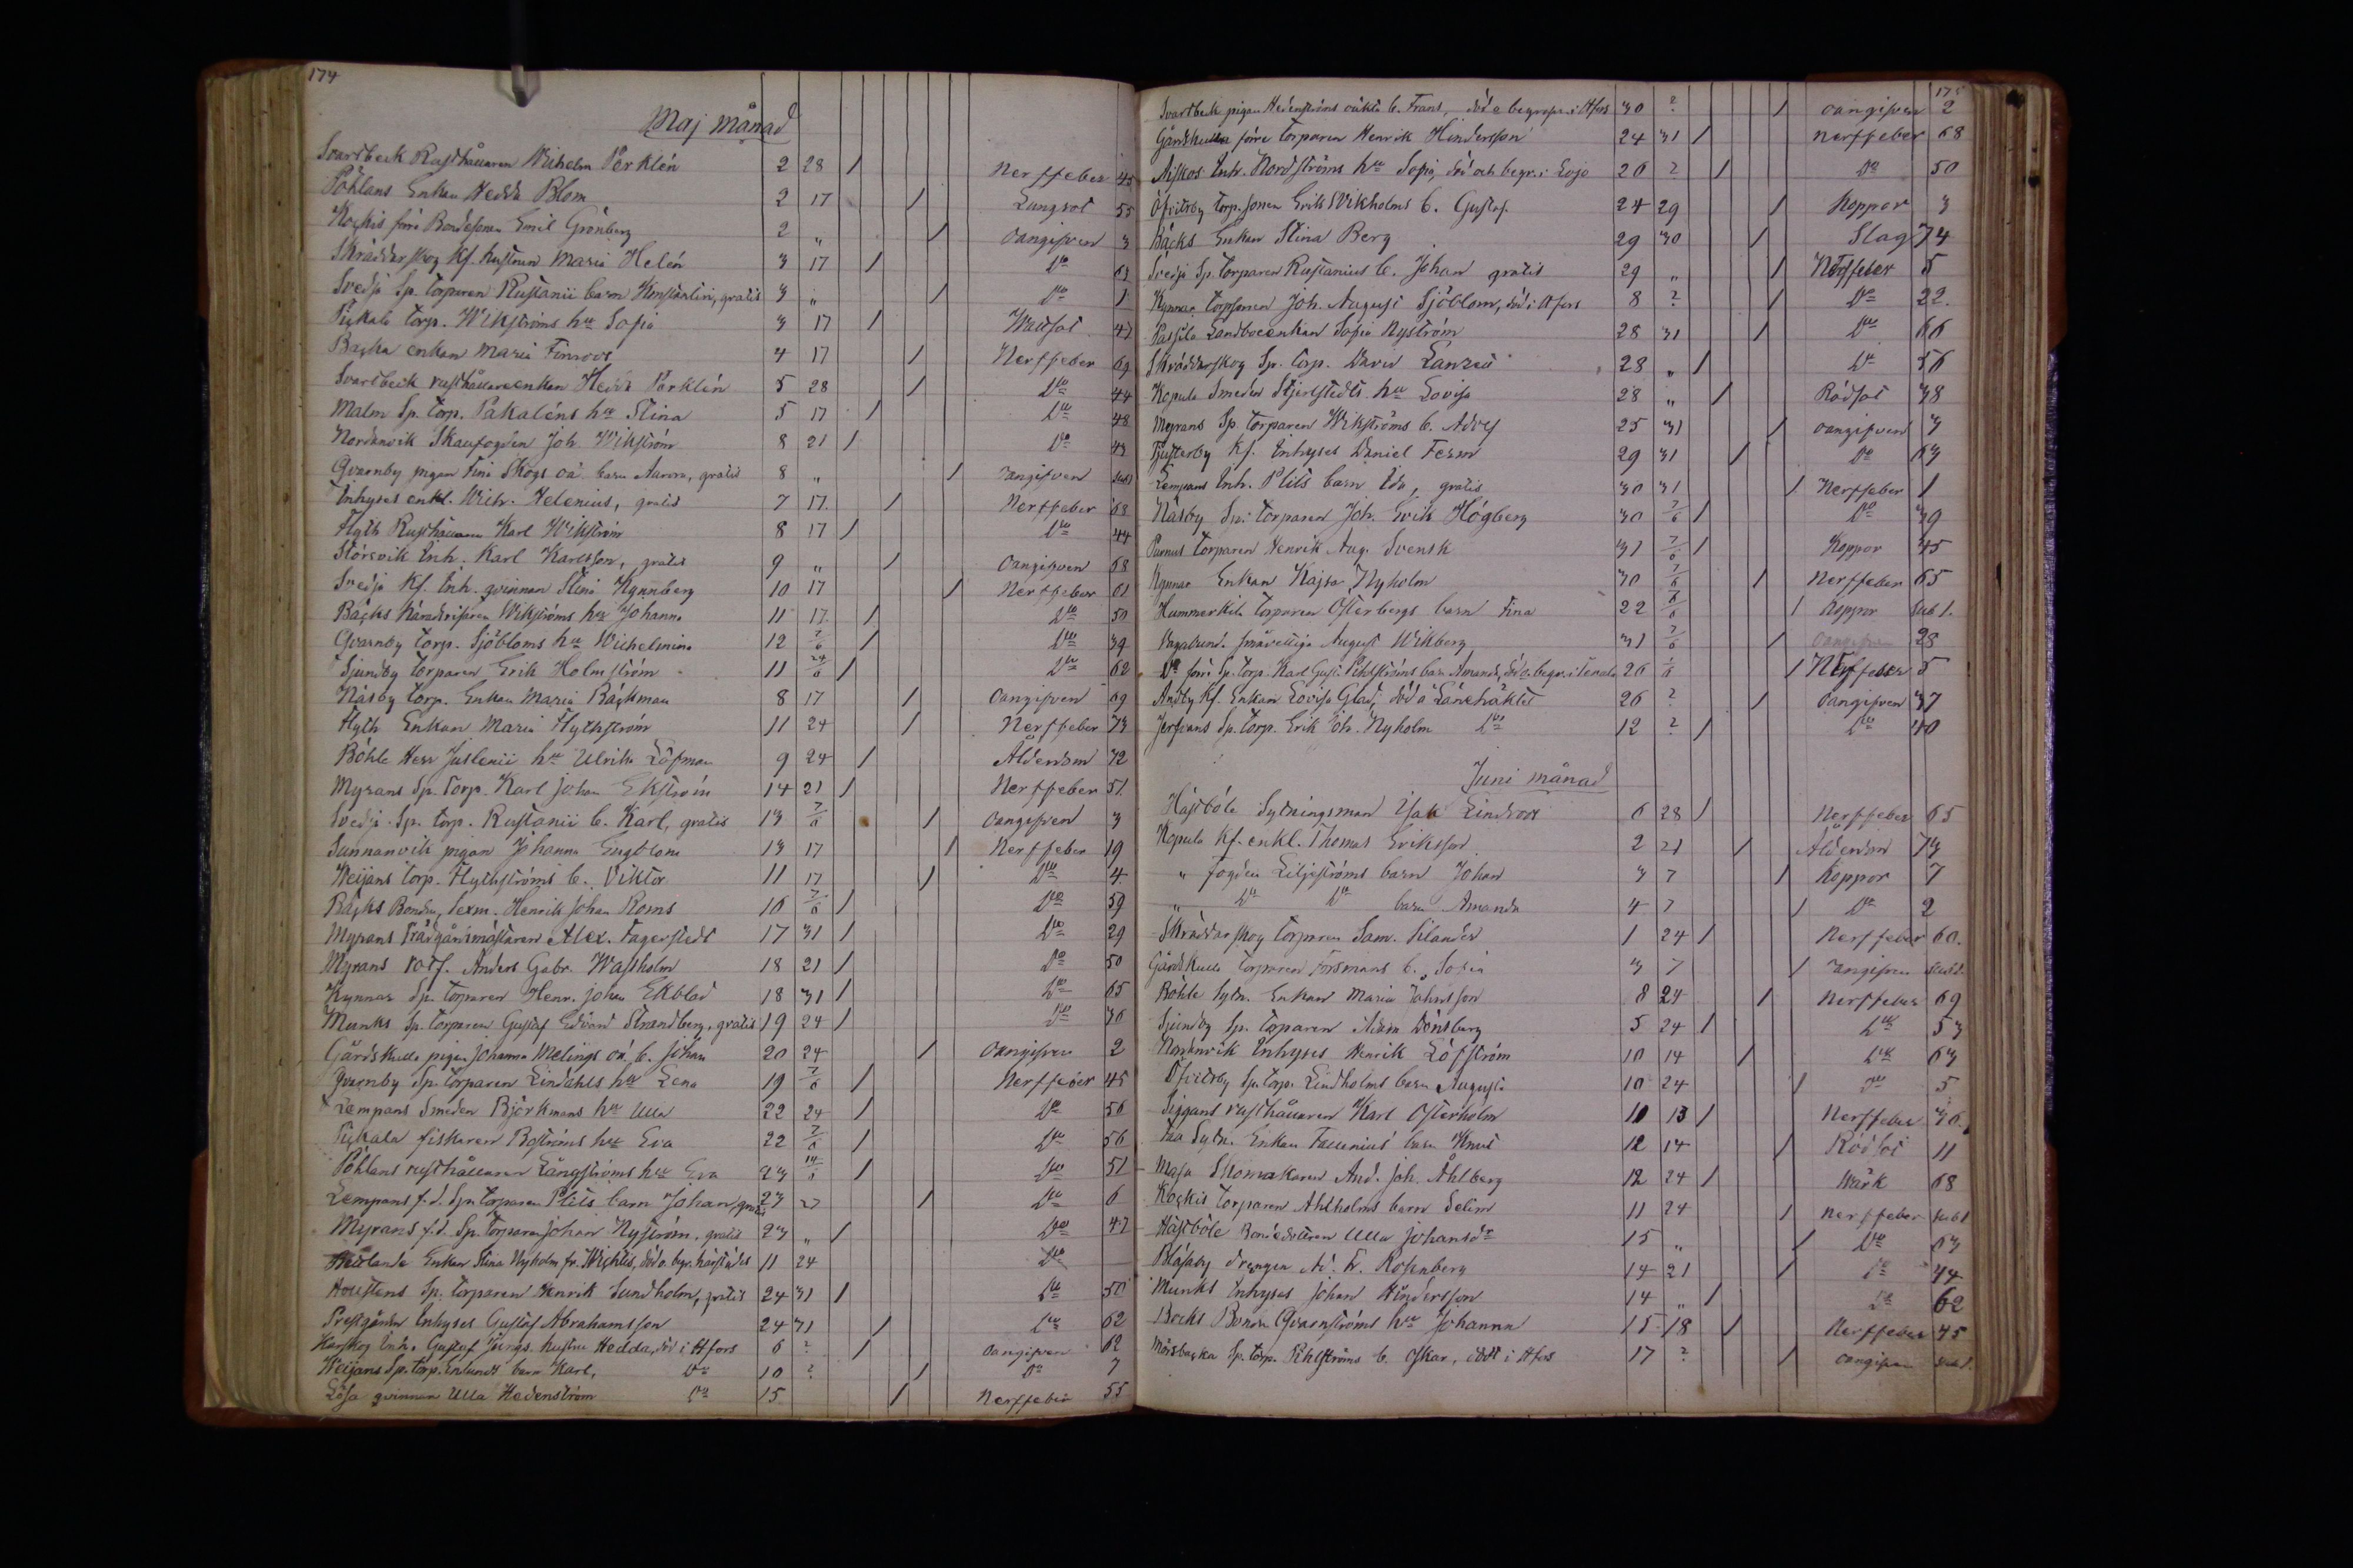 174
Maj månad
Svartbeck Rusthållaren Wilhelm Perklén 2 28 / Nerffeber 45
Påhlans Enkan Hedda Blom 2 17 / Lungsot 55
Kockis förre Bondesonen Emil Grönberg 2 „ / Oangifven 3
Skräddarskog Kf. hustrun Maria Helén 3 17 / Do 63
Svedja Sp. torparen Rustanii barn Konstantin, gratis 3 „ / Do 1
Pickala torp. Wikströms hu Sofia 3 17 / Wattsot 47
Backa enkan Maria Finroos 4 17 / Nerffeber 69
Svartbeck rusthållareenkan Hedda Perklén 5 28 / Do 44
Malm Sp. torp. Pakaléns hu Stina 5 17 / Do 48
Nordanvik Skaufogden Joh. Wikström 8 21 / Do 43
Qvarnby pigan Fina Skogs oä barn Aurora, gratis 8 „ / oangifven
Inhyses enkl. Wilh. Helenius, gratis 7 17 / Nerffeber 68
Flyth Rusthållaren Karl Wikström 8 17 / Do 44
Störsvik Inh. Karl Karlsson, gratis 9 „ / Oangifven 68
Svedja Kf. Inh. qvinnan Stina Kynnberg 10 17 / Nerffeber 61
Bäcks Wikströms hu Johanna 11 17 / Do 50
Qvarnby torp. Sjöbloms hu Wilhelmina 12 7/6 / Do 39
Sjundby torparen Erik Holmström 11 24/6 / Do 62
Näsby torp. Enkan Maria Bäckman 8 17 / Oangifven 69
Flyth Enkan Maria Flythström 11 24 / Nerffeber 73
Böhle Herr Juslenii hu Ulrika Löfman 9 24 / Ålderdom 72
Myrans Sp. torp. Karl Johan Ekström 14 21 / Nerffeber 51
Svedja Sp. torp. Rustanii b. Karl, gratis 13 7/6 / Oangifven 3
Sunnanvik pigan Johanna Engblom 13 17 / Nerffeber 19
Weijans torp. Flythströms b. Viktor 11 17 / Do 4
Bäcks Bonden, Sexm. Henrik Johan Roms 16 7/6 / Do 59
Myrans Trädgårdsmästaren Alex. Fagerstedt 17 31 / Do 29
Myrans Anders Gabr. Wassholm 18 21 / Do 50
Kynnar Sp. torparen Henr. Johan Ekblad 18 31 / Do 65
Munks Sp. torparen Gustaf Edvard Strandberg, gratis 19 24 / Do 36
Gårdskulla pigan Johanna Melings oä. b. Johan 20 24 / Oangifven 2
Qvarnby Sp. torparen Lindahls hu Lena 19 7/6 / Nerffeber 45
Lempans Smeden Björkmans hu Ulla 22 24 / Do 56
Pickala fiskaren Boströms hu Eva 22 7/6 / Do 56
Påhlans rusthållaren Långströms hu Eva 23 14/6 / Do 51
Lempans f.d. Sp. torparen Plits barn Johan, gratis 23 27 / Do 6
Myrans f.d. Sp. torparen Johan Nyström, gratis 23 „ / Do 47
Enkan Stina Nyholm fr. Wichtis, död o. begr. härstädes 11 24 Do
Sp. torparen Henrik Sundholm, gratis 24 31 / Do 50
Prestgården Inhyses Gustaf Abrahamsson 24 31 / Do 62
Harskog Inh. Gustaf Ljungs hustru Hedda, död i Hfors 6 ? / Oangifven 62
Weijans Sp. torp. Enlunds barn Karl, Do 10 ? / Do 7
Lösa qvinnan Ulla Hedenström Do 15 / Nerffeber 55
175
Svartbeck pigan Hedenströms oäkta b. Frans, död o begrafven i Hfors 30 ? / oangifven 2
Gårdskulla förre torparen Henrik Hindersson 24 31 / Nerffeber 68
Inh. Nordströms hu Sofia, död och begr. i Lojo 26 ? / Do 50
Öfvitsby torp. sonen Erik Wikholms b. Gustaf 24 29 / Koppor 3
Bäcks Enkan Stina Berg 29 30 / Slag 74
Svedja Sp. torparen Rustanius b. Johan gratis 29 „ / Nerffeber 5
Kynnar torpsonen Joh. August Sjöblom, död i Hfors 8 ? / Do 22
Passila Landboenkan Sofia Nyström 28 31 / Do 66
Skräddarskog Sp. torp. David Lanzen 28 „ / Do 56
Kopula Smeden Stjerlstedts hu Lovisa 28 „ / Rödsot 38
Myrans Sp torparen Wikströms b. Adolf 25 31 / oangifven 3
Tjusterby Kf. Inhyses Daniel Ferm 29 31 / Do 63
Lempans Inh. Plits barn Ida, gratis 30 31 / Nerffeber 1
Näsby Sp. torparen Joh. Erik Högberg 30 7/6 / Do 39
Purnus torparen Henrik Aug. Svensk 31 7/6 / Koppor 45
Kynnar Enkan Kajsa Nyholm 30 7/6 / Nerffeber 65
Hummerkila torparen Österbergs barn Fina 22 7/6 / Koppor sub 1.
Vagabund. Smävettiga August Wikberg 31 7/6 / Oangifven 28
Do förre Sp. torp. Karl Gust. Pihlströms barn Amanda, död o. begr. i Tenala 26 ?/6 / Nerffeber 5
Andby Kf. Enkan Lovisa Glad, död å Länehäktet 26 ? / Oangifven 37
Jerfvans Sp. torp. Erik Joh. Nyholm Do 12 ? / Do 40
Juni månad
Hästböle Sytningsman Isak Lindroos 6 28 / Nerffeber 65
Kopula Kf. enkl. Thomas Eriksson 2 21 / Ålderdom 73
„ Fogden Liljeströms barn Johan 3 7 / Koppor 7
„ Do Do barn Amanda 4 7 / Do 2
Skräddarskog torparen Sam. Silander 1 24 / Nerffeber 60.
Gårdskulla torparen Forsmans b. Sofia 3 7 / oangifven
Böhle Sytn. Enkan Maria Johansson 8 24 / Nerffeber 69
Sjundby Sp. torparen Adam Dönsberg 5 24 / Do 53
Nordanvik Inhyses Henrik Löfström 10 14 / Do 63
Öfvitsby Sp. torp. Lindholms barn Augusta 10 24 / Do 5
Siggans rusthållaren Karl Österholm 10 13 / Nerffeber 36
Sytn. Enkan Fallenius barn Knut 12 14 / Rödsot 11
Masa Skomakaren And. Joh. Åhlberg 12 24 / Wärk 68
Kockis torparen Ahlholms barn Selim 11 24 / Nerffeber sub 1
Hästböle Bondedottern Ulla Johansdr 15 „ / Do 63
drengen Ad. Fr. Rosenberg 14 21 / Do 44
Munks Inhyses Johan Hindersson 14 „ / Do 62
Bocks Bonden Qvarnströms hu Johanna 15 18 / Nerffeber 45
Mörsbacka Sp. torp. Pihlströms b. Oskar, död i Hfors 17 ? / oangifven sub 1.